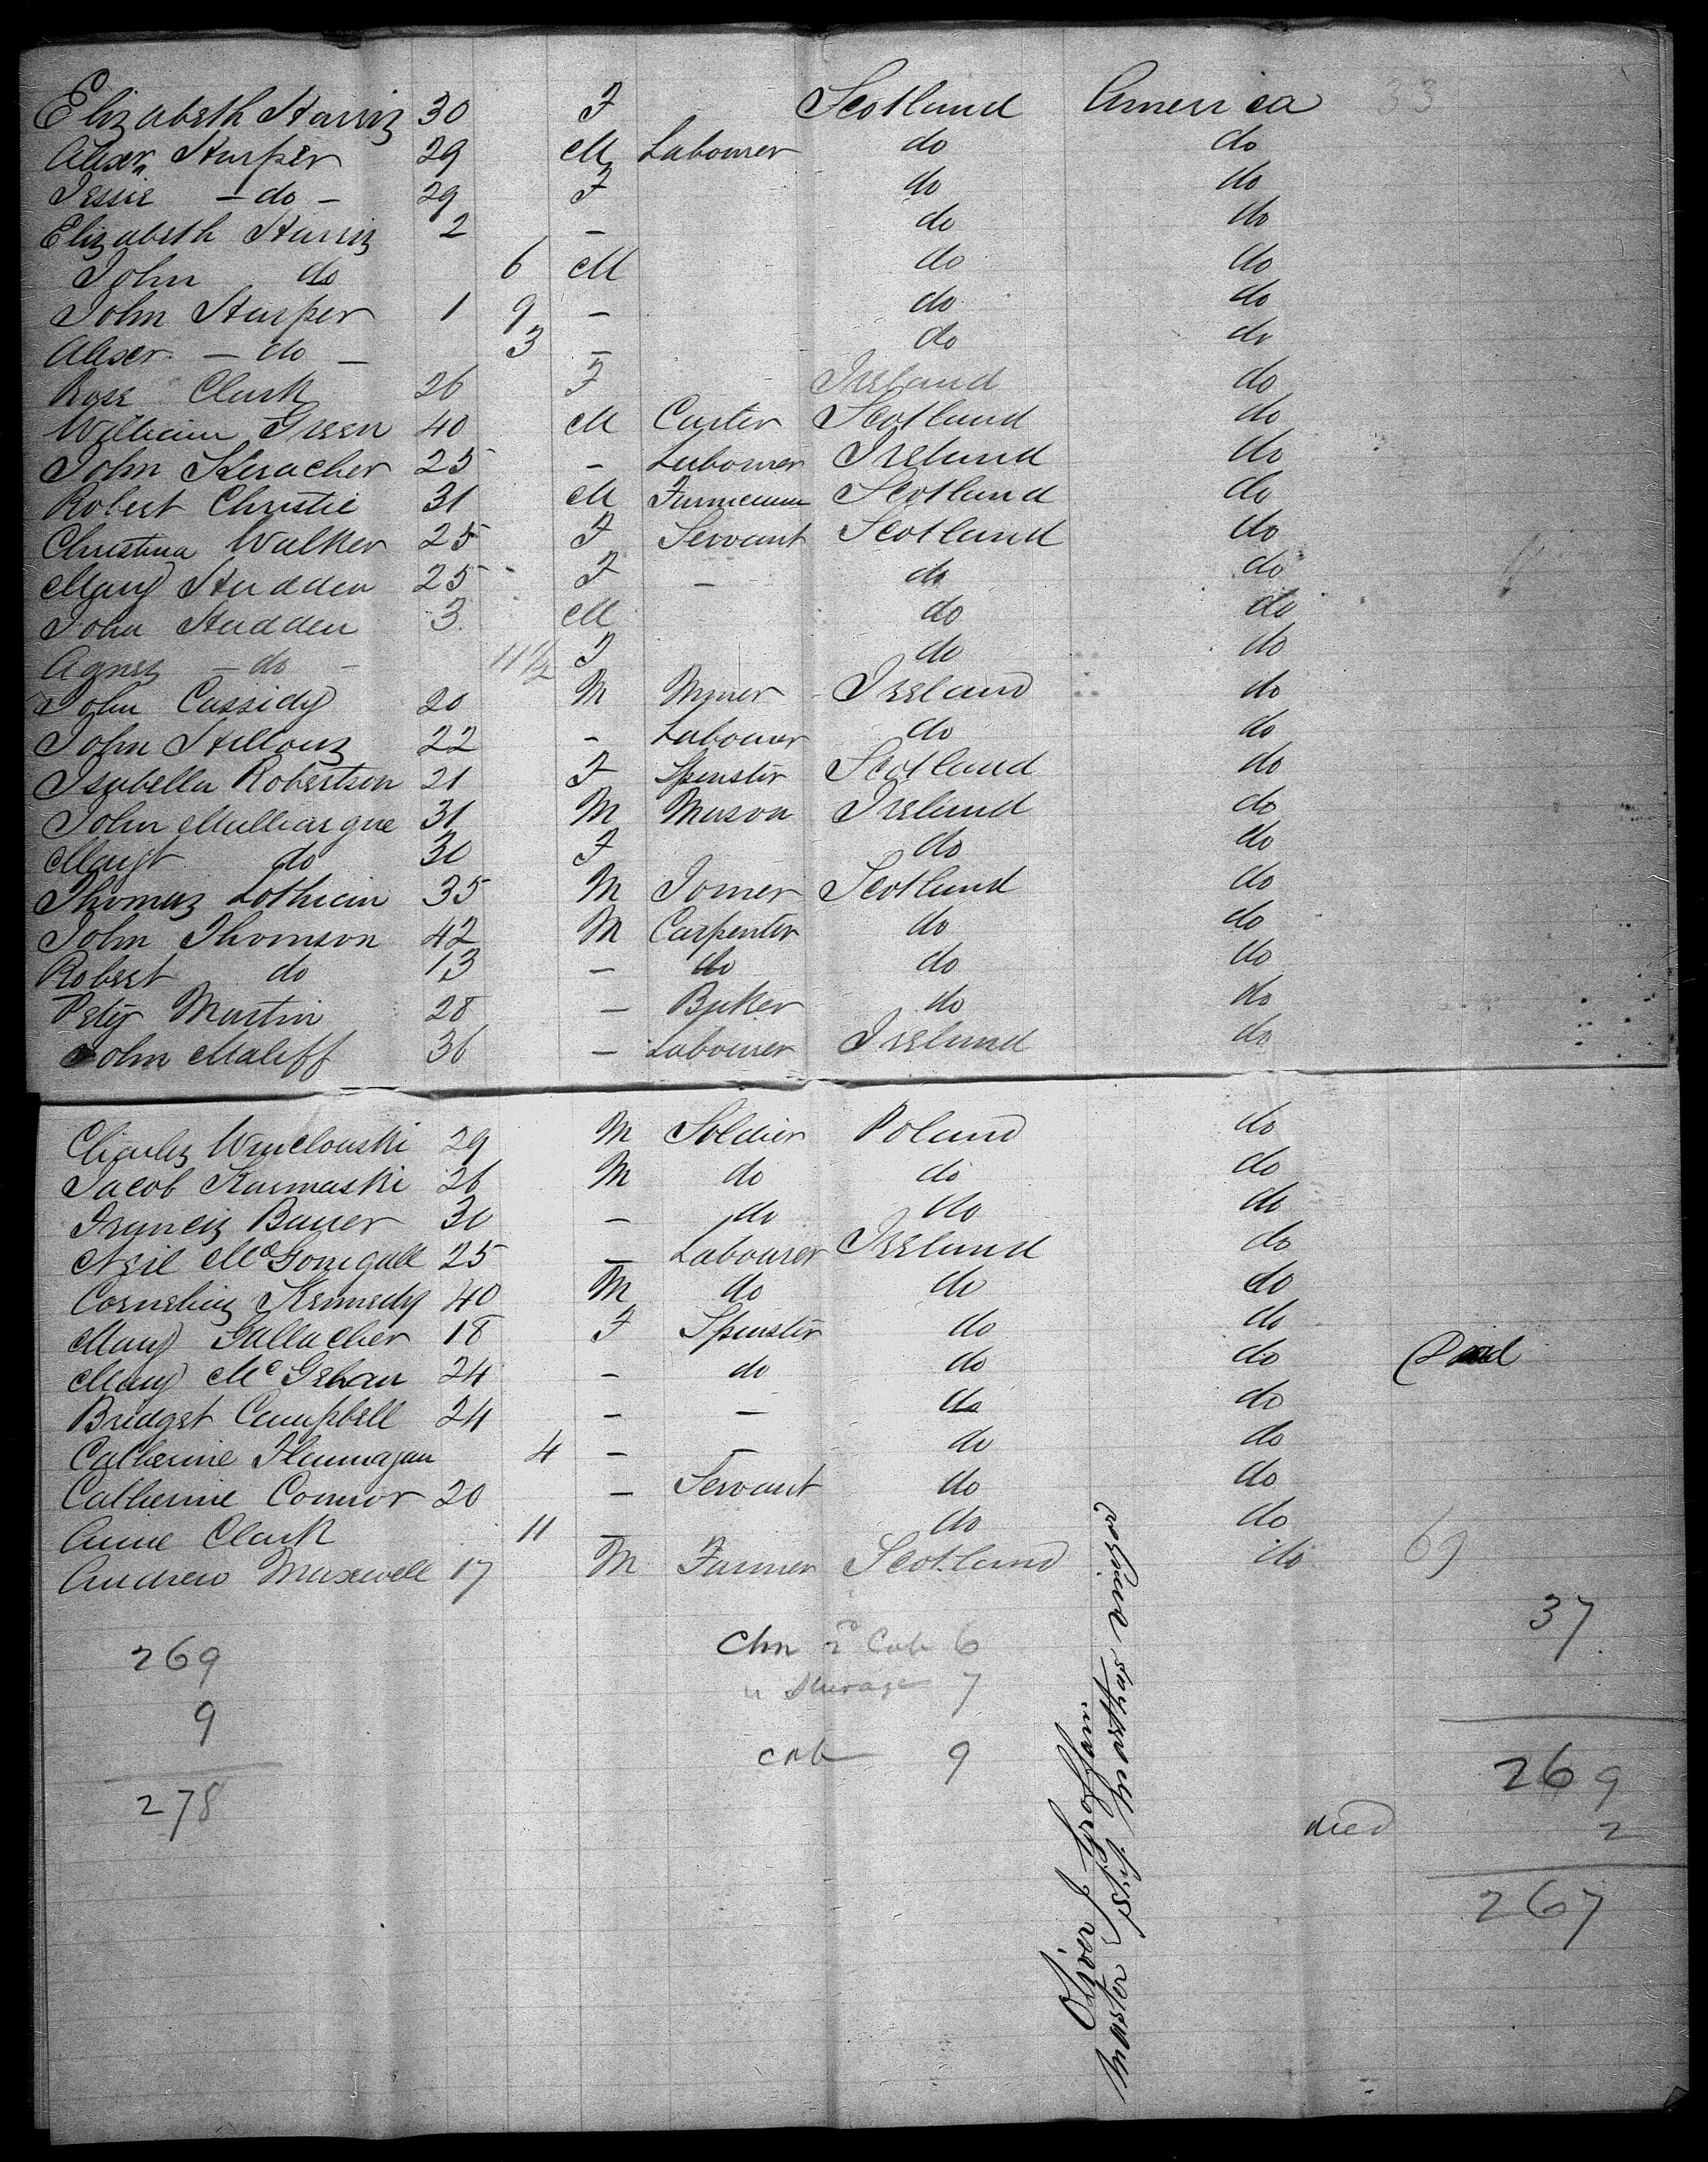 Elizabeth Harris 30 F Scotland America 33
Alexr Harper 29 M Labourer do do
Jessie - do - 29 F do do
Elizabeth Harris 2 - do do
John do 6 M do do
John Harper 1 9 - do do
Alexr - do - 3 - do do
Rose Clark 26 F Ireland do
William Green 40 M Carter Scotland do
John Keracher 25 - Labourer Ireland do
Robert Christie 31 M Scotland do
Christina Walker 25 F Servant Scotland do
Mary Hadden 25 F - do do
John Hadden 3 M do do
Agnes - do - 11 1/2 F do do
John Cassidy 20 M Miner Ireland do
John 22 - Labourer do do
Isabella Robertson 21 F Spinster Scotland do
John Mulliargue 31 M Mason Ireland do
Margt do 30 F do do
Thomas Lothian 35 M Joiner Scotland do
John Thomson 42 M Carpenter do do
Robert do 13 - do do do
Peter Martin 28 - Baker do do
John Maliff 36 - Labourer Ireland do
Charles Wruclouski 29 M Soldier Poland do
Jacob Karmaski 26 M do do do
Francis Bauer 30 - do do do
Neil McGonigall 25 - Labourer Ireland do
Cornelius Kennedy 40 M do do do
Mary Gallacher 18 F Spinster do do
Mary McGehan 24 - do do do
Bridget Campbell 24 - - do do
Catherine Flannagan 4 - - do do
Catherine Connor 20 - Servant do do
Anne Clark 11 - do do
Andrew Maxwell 17 M Farmer Scotland do 69
37
269 Chn 2d Cab 6
" Steerage 7
9
cab 9
269
278
died 2
267
Oliver J Groffam
Master Ship Marthas vinyard